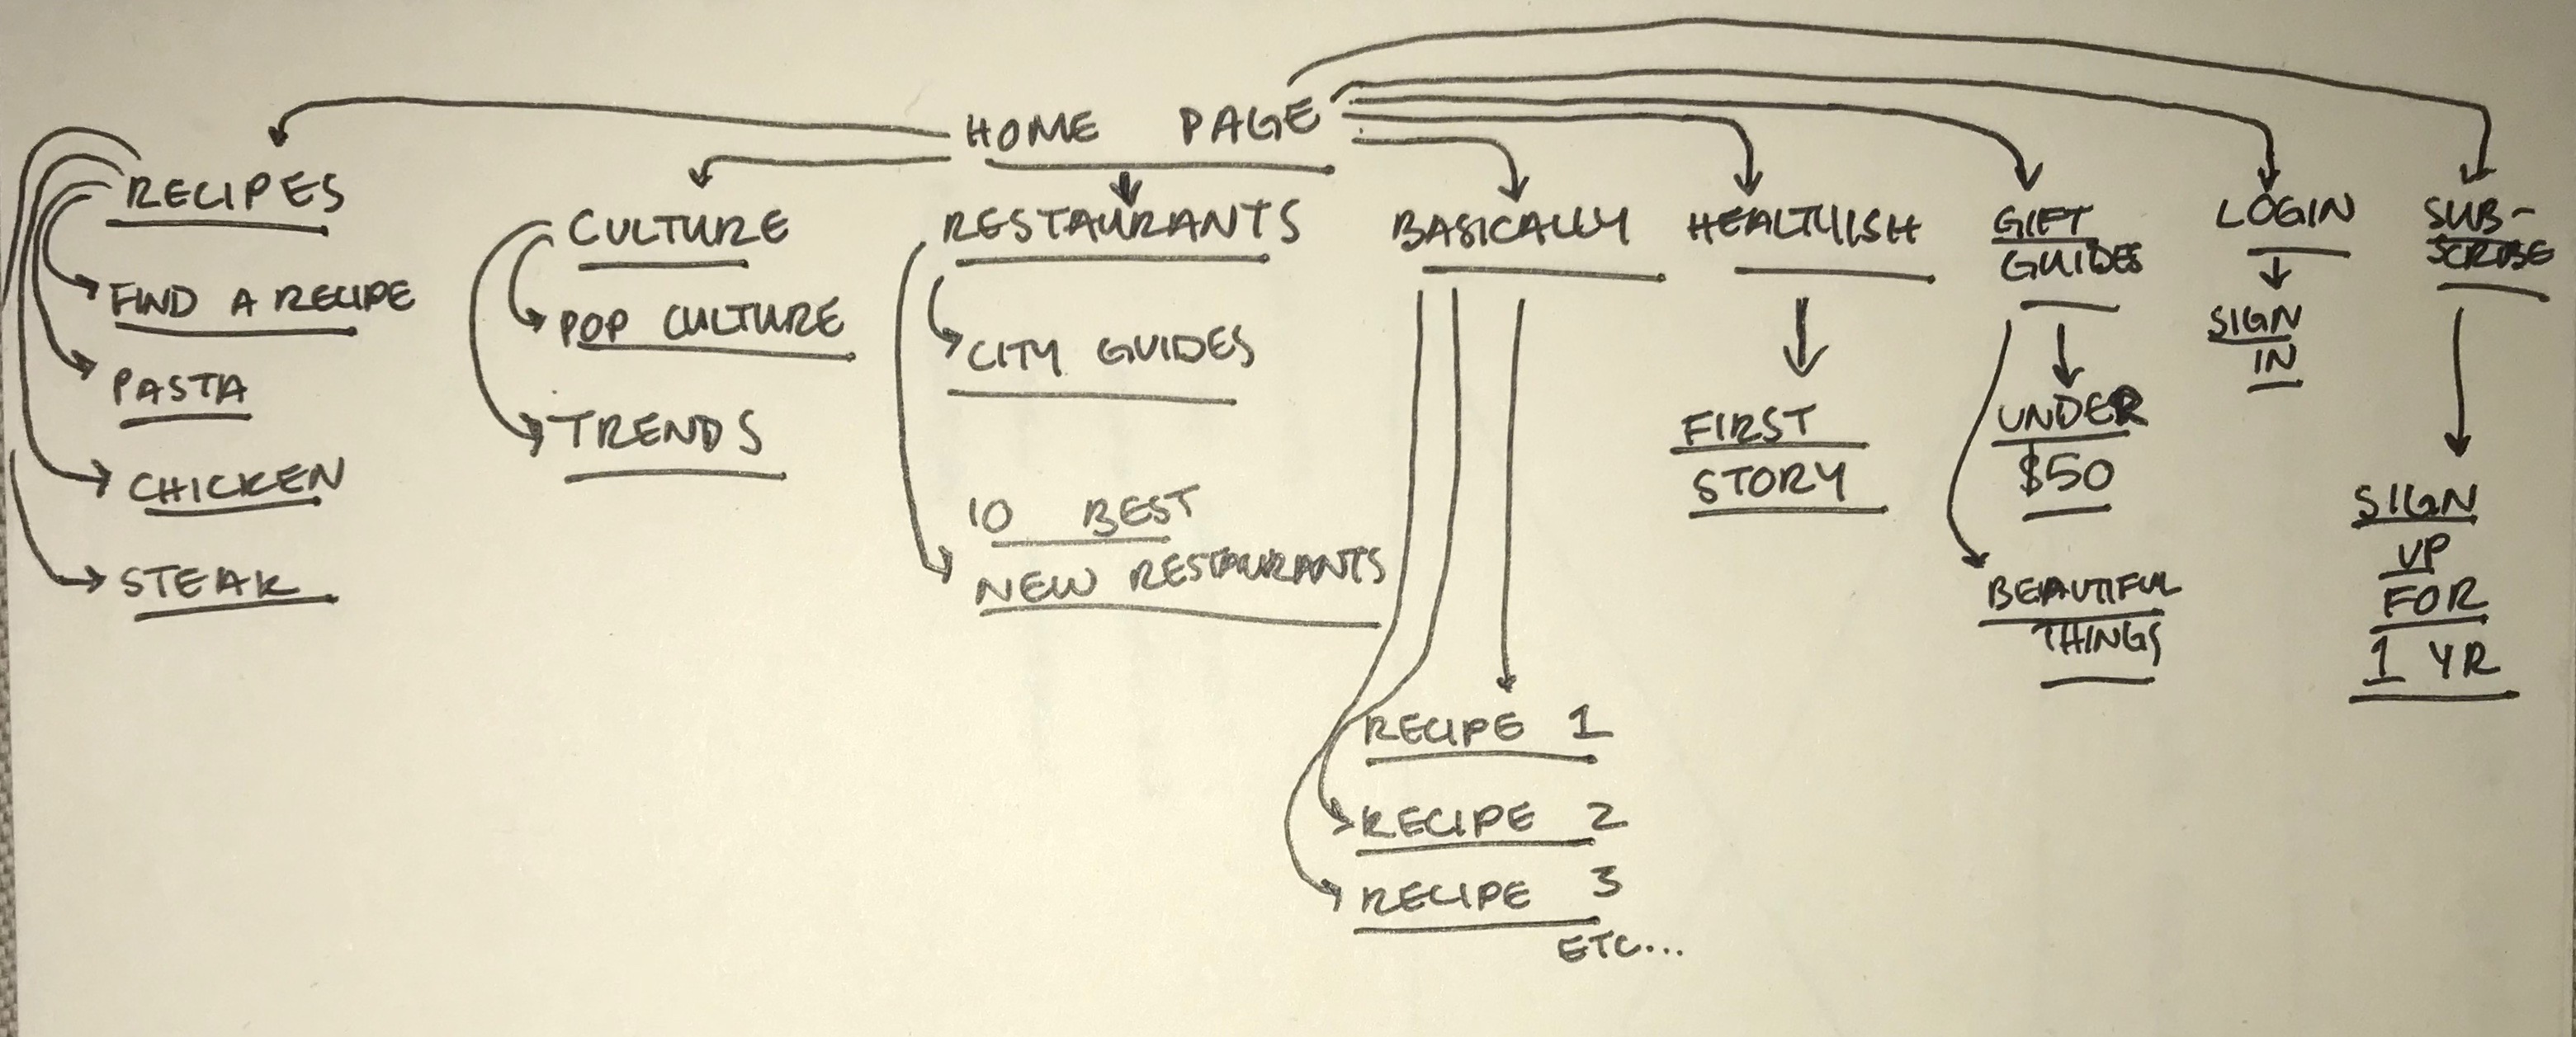 HOME PAGE
RECIPES
FIND A RECIPE
PASTA
CHICKEN
STEAK
CULTURE
POP CULTURE
TRENDS
RESTAURANTS
CITY GUIDES
10 BEST
NEW RESTAURANTS
BASICALLY
RECIPE 1
RECIPE 2
RECIPE 3
ETC...
HEALTHYISH
FIRST
STORY
GIFT
GUIDES
UNDER
$50
BEAUTIFUL
THINGS
LOGIN
SIGN
IN
SUB-
SCRIBE
SIGN
UP
FOR
1 YR